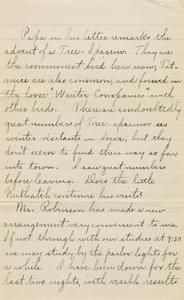 Papa in his letter remarks the
advent of a Tree-Sparrow. They are
the commonest bird here now; Tit-
mice are also common, and found in
the loose "Winter Companies" with
other birds. There are undoubtedly
great numbers of Tree-Sparrows as
winter visitants in Iowa, but they
don't seem to find their way so far
into town. I saw great numbers
before leaving. Does the little
Nuthatch continue his visits?
Mr. Robinson has made a new
arrangement very convenient to me.
If not through with our studies at 9:30
we may study by the parlor lights for
a while. I have been down for the
last two nights, with visible results